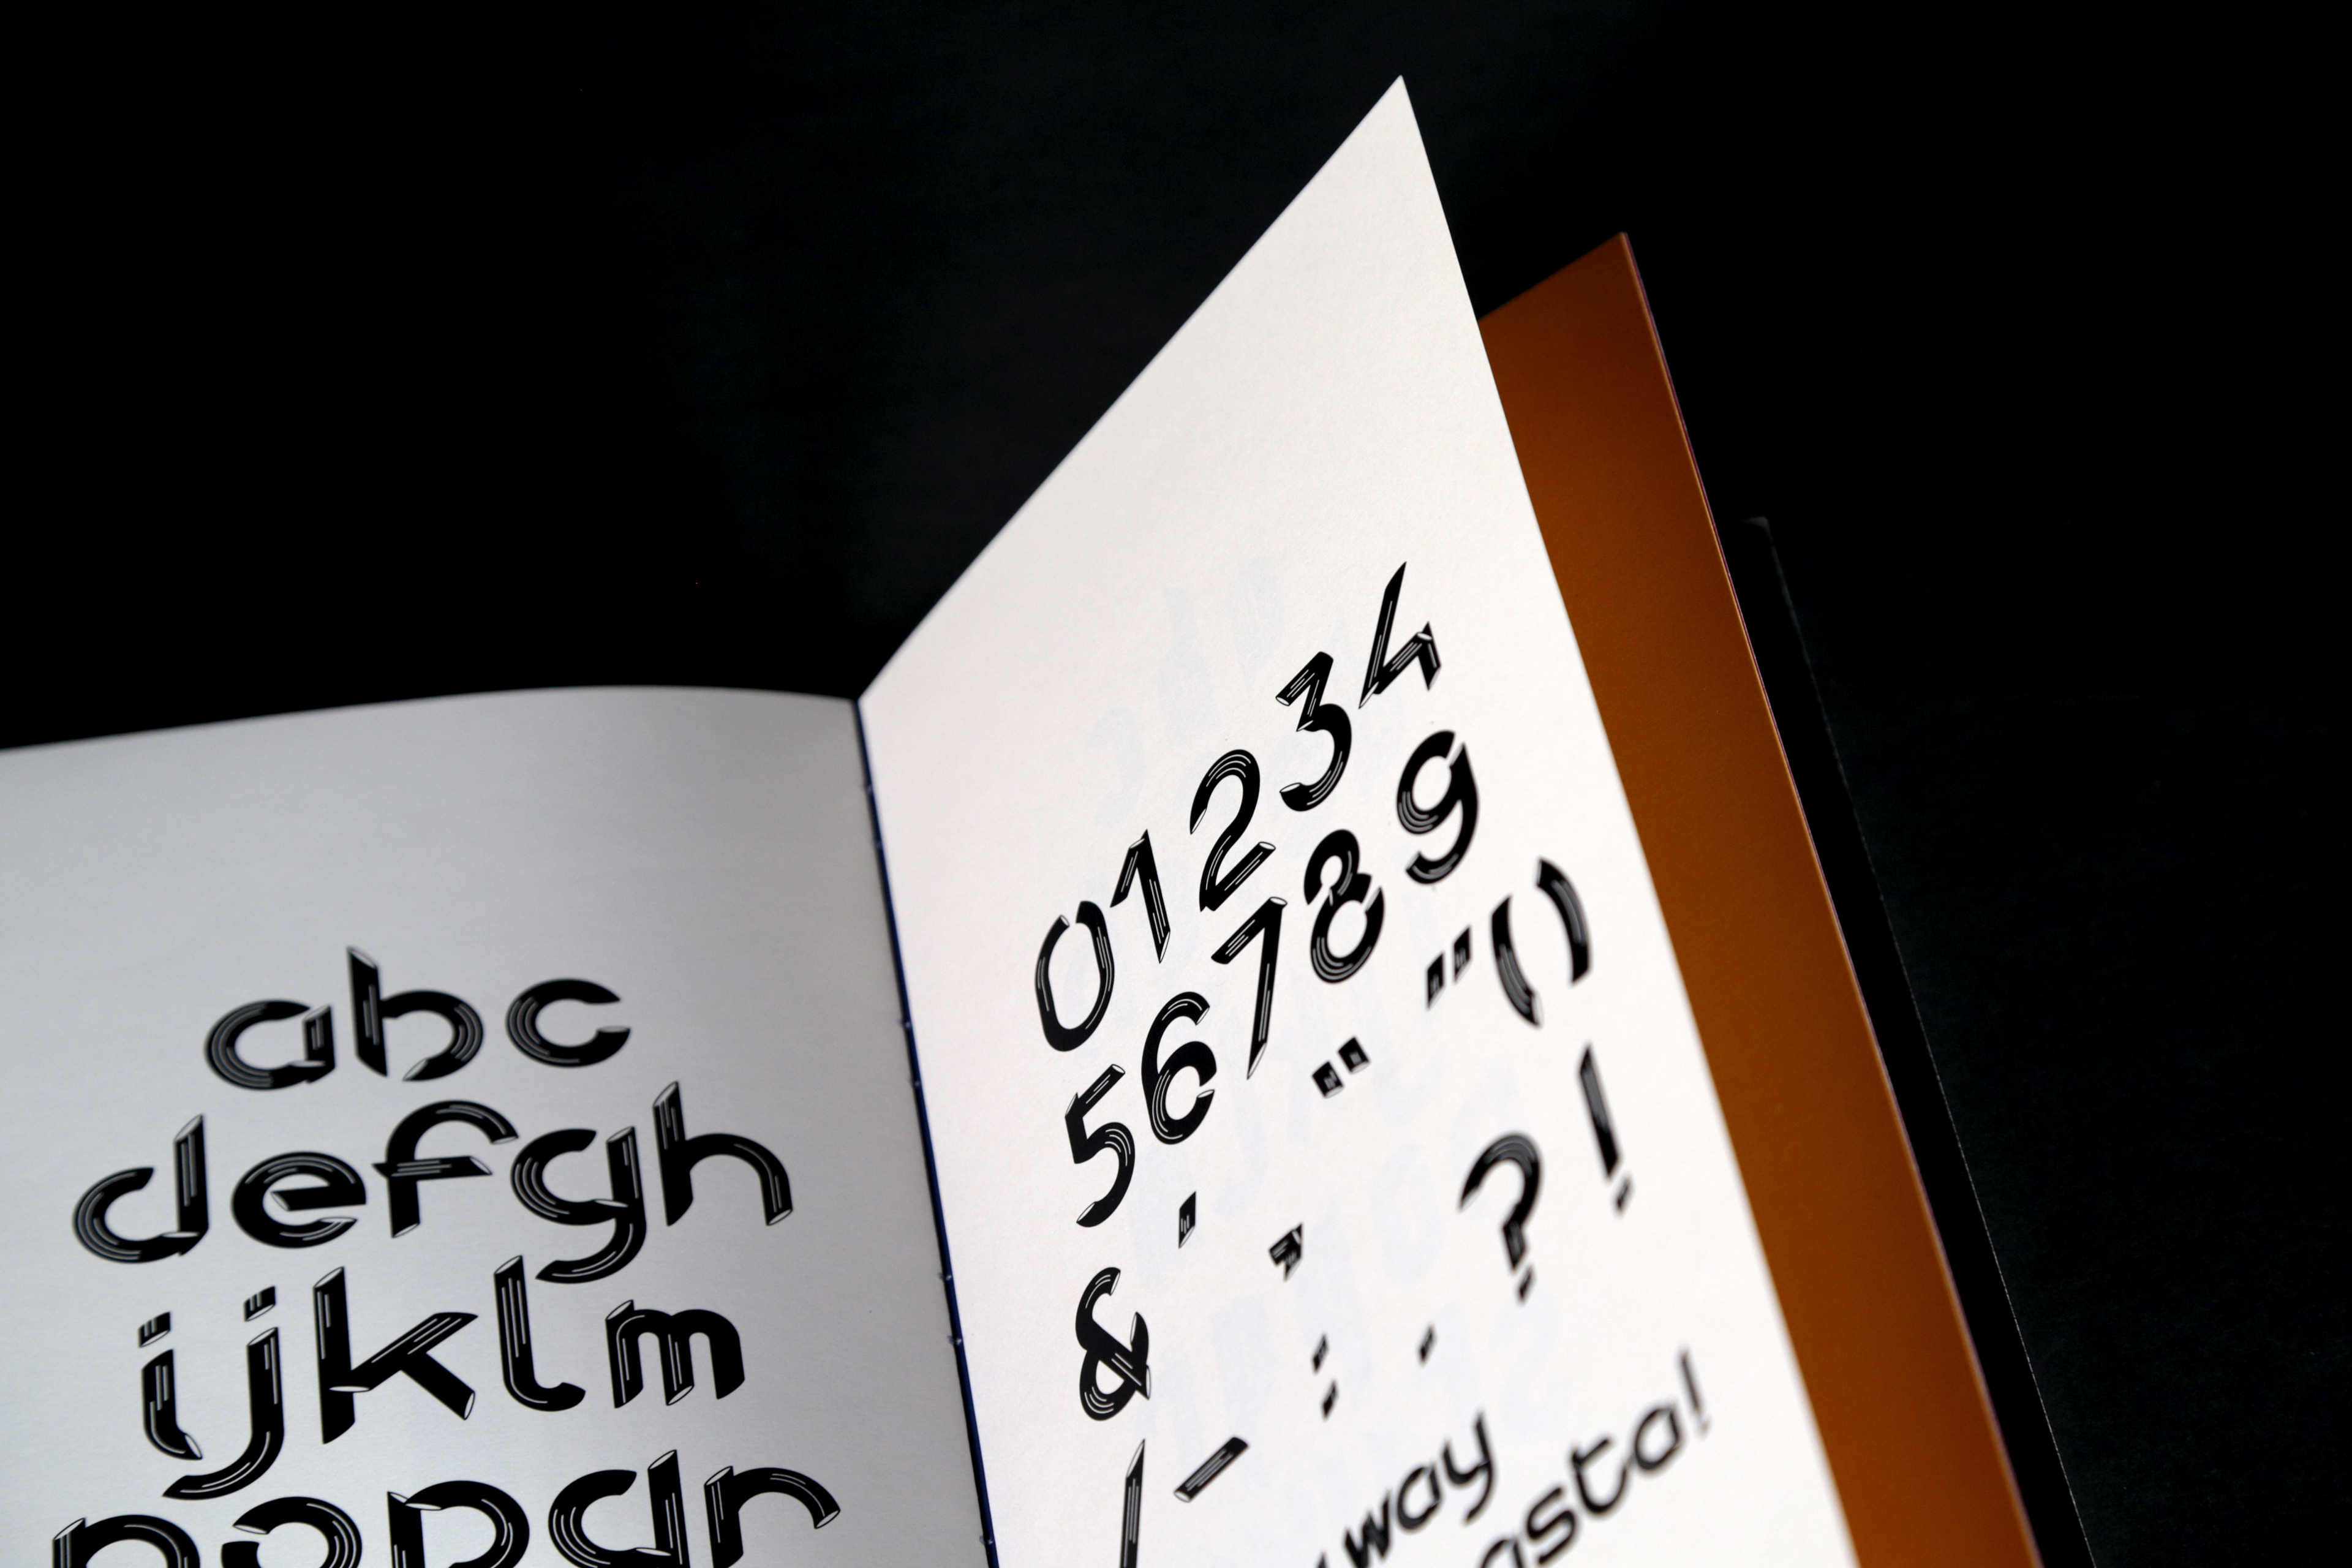 abc
defgh
ijklm
nopqr
01234
56789
& ' " " ( )
, ? !
: .
/ –
way
asta!